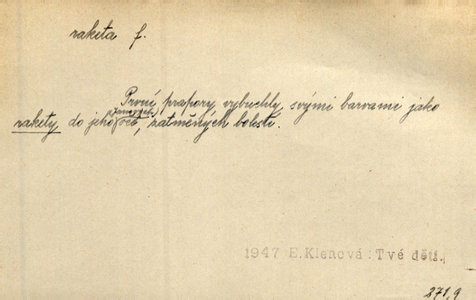 raketa f.
První prapory vybuchly svými barvami jako
rakety do jeho očí, zatměných bolestí.
1947 E.Klenová: Tvé děti.
271,9